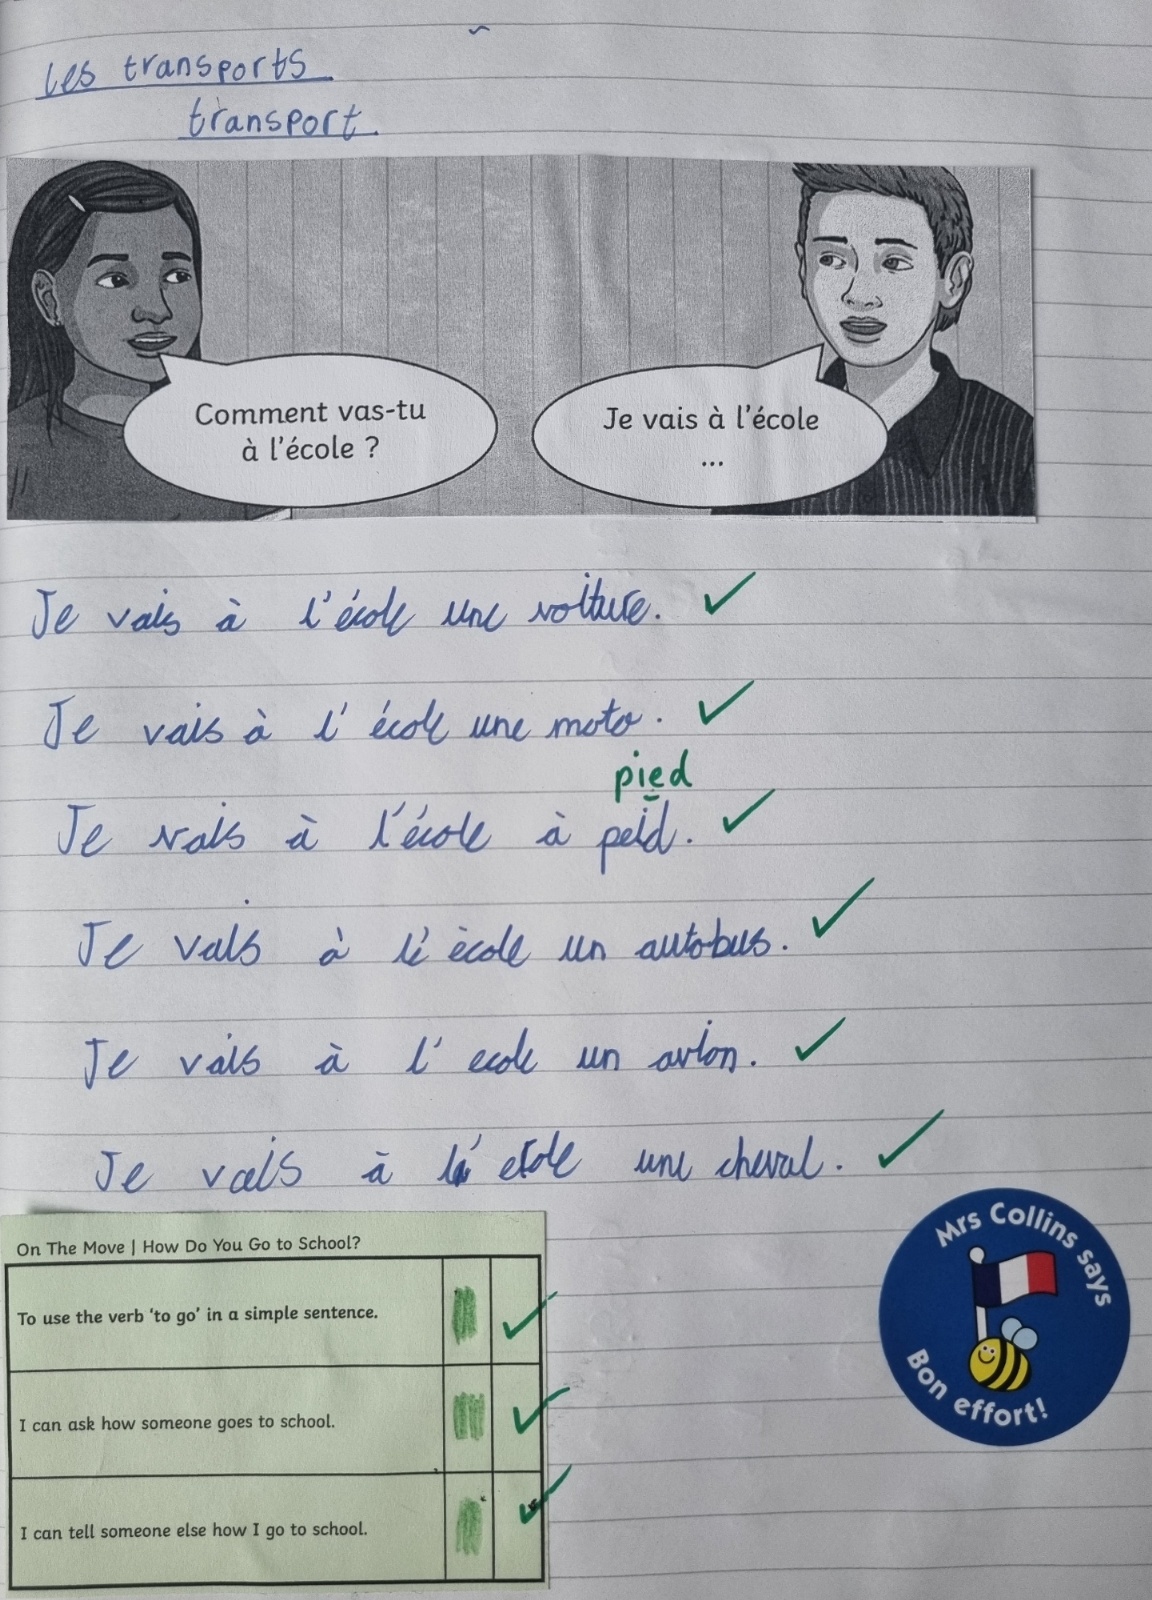 Les transports
transport.
Comment vas-tu
à l'école ?
Je vais à l'école
...
Je vais à l'école une voiture.
Je vais à l' école une moto.
pied
Je vais à l'école à peid.
Je vais à l'école un autobus.
Je vais à l' ecole un avion.
Je vais à l' ecole une cheval.
On The Move | How Do You Go to School?
To use the verb 'to go' in a simple sentence.
I can ask how someone goes to school.
I can tell someone else how I go to school.
Mrs Collins says
Bon effort!